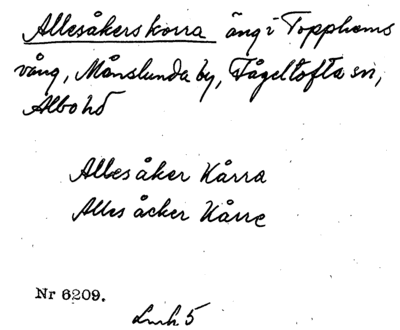 Allesåkerskorra äng i Topphems
vång, Månslunda by, Fågeltofta sn,
Albo hd
Allesåker Kårra
Alles åcker Kårre
Nr 6209.
5